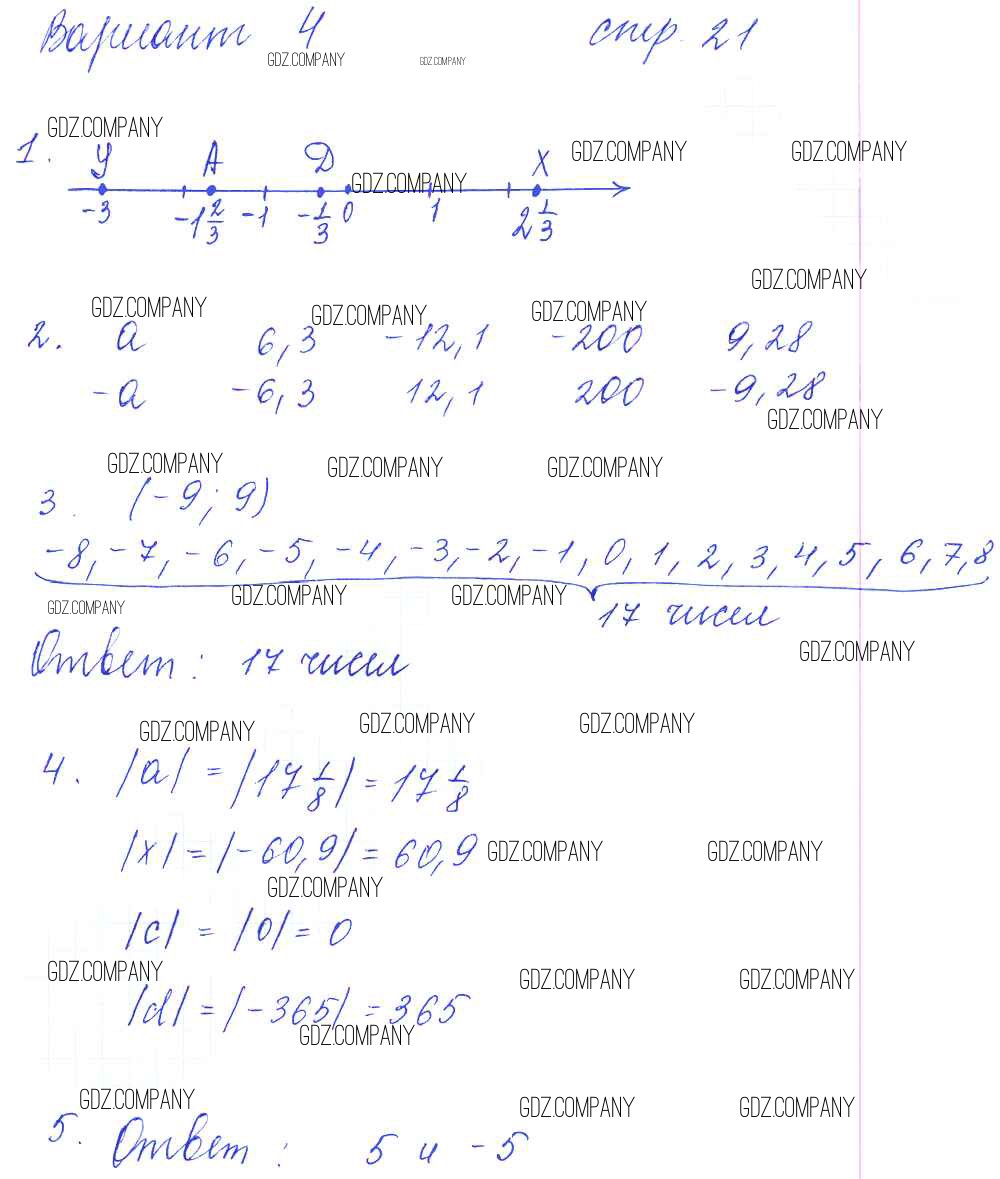 Вариант 4 стр. 21
GDZ.COMPANY GDZ.COMPANY
GDZ.COMPANY
1. У А D X GDZ.COMPANY GDZ.COMPANY
GDZ.COMPANY
-3 -1 2/3 -1 -1/3 0 1 2 1/3
GDZ.COMPANY
GDZ.COMPANY GDZ.COMPANY GDZ.COMPANY
2. a 6,3 -12,1 -200 9,28
-a -6,3 12,1 200 -9,28
GDZ.COMPANY
GDZ.COMPANY GDZ.COMPANY GDZ.COMPANY
3. (-9; 9)
-8, -7, -6, -5, -4, -3, -2, -1, 0, 1, 2, 3, 4, 5, 6, 7, 8
GDZ.COMPANY GDZ.COMPANY GDZ.COMPANY
17 чисел
Ответ: 17 чисел GDZ.COMPANY
GDZ.COMPANY GDZ.COMPANY GDZ.COMPANY
4. |a| = |17 1/8| = 17 1/8
|x| = |-60,9| = 60,9 GDZ.COMPANY GDZ.COMPANY
GDZ.COMPANY
|c| = |0| = 0
GDZ.COMPANY GDZ.COMPANY GDZ.COMPANY
|d| = |-365| = 365
GDZ.COMPANY
GDZ.COMPANY GDZ.COMPANY GDZ.COMPANY
5. Ответ: 5 и -5